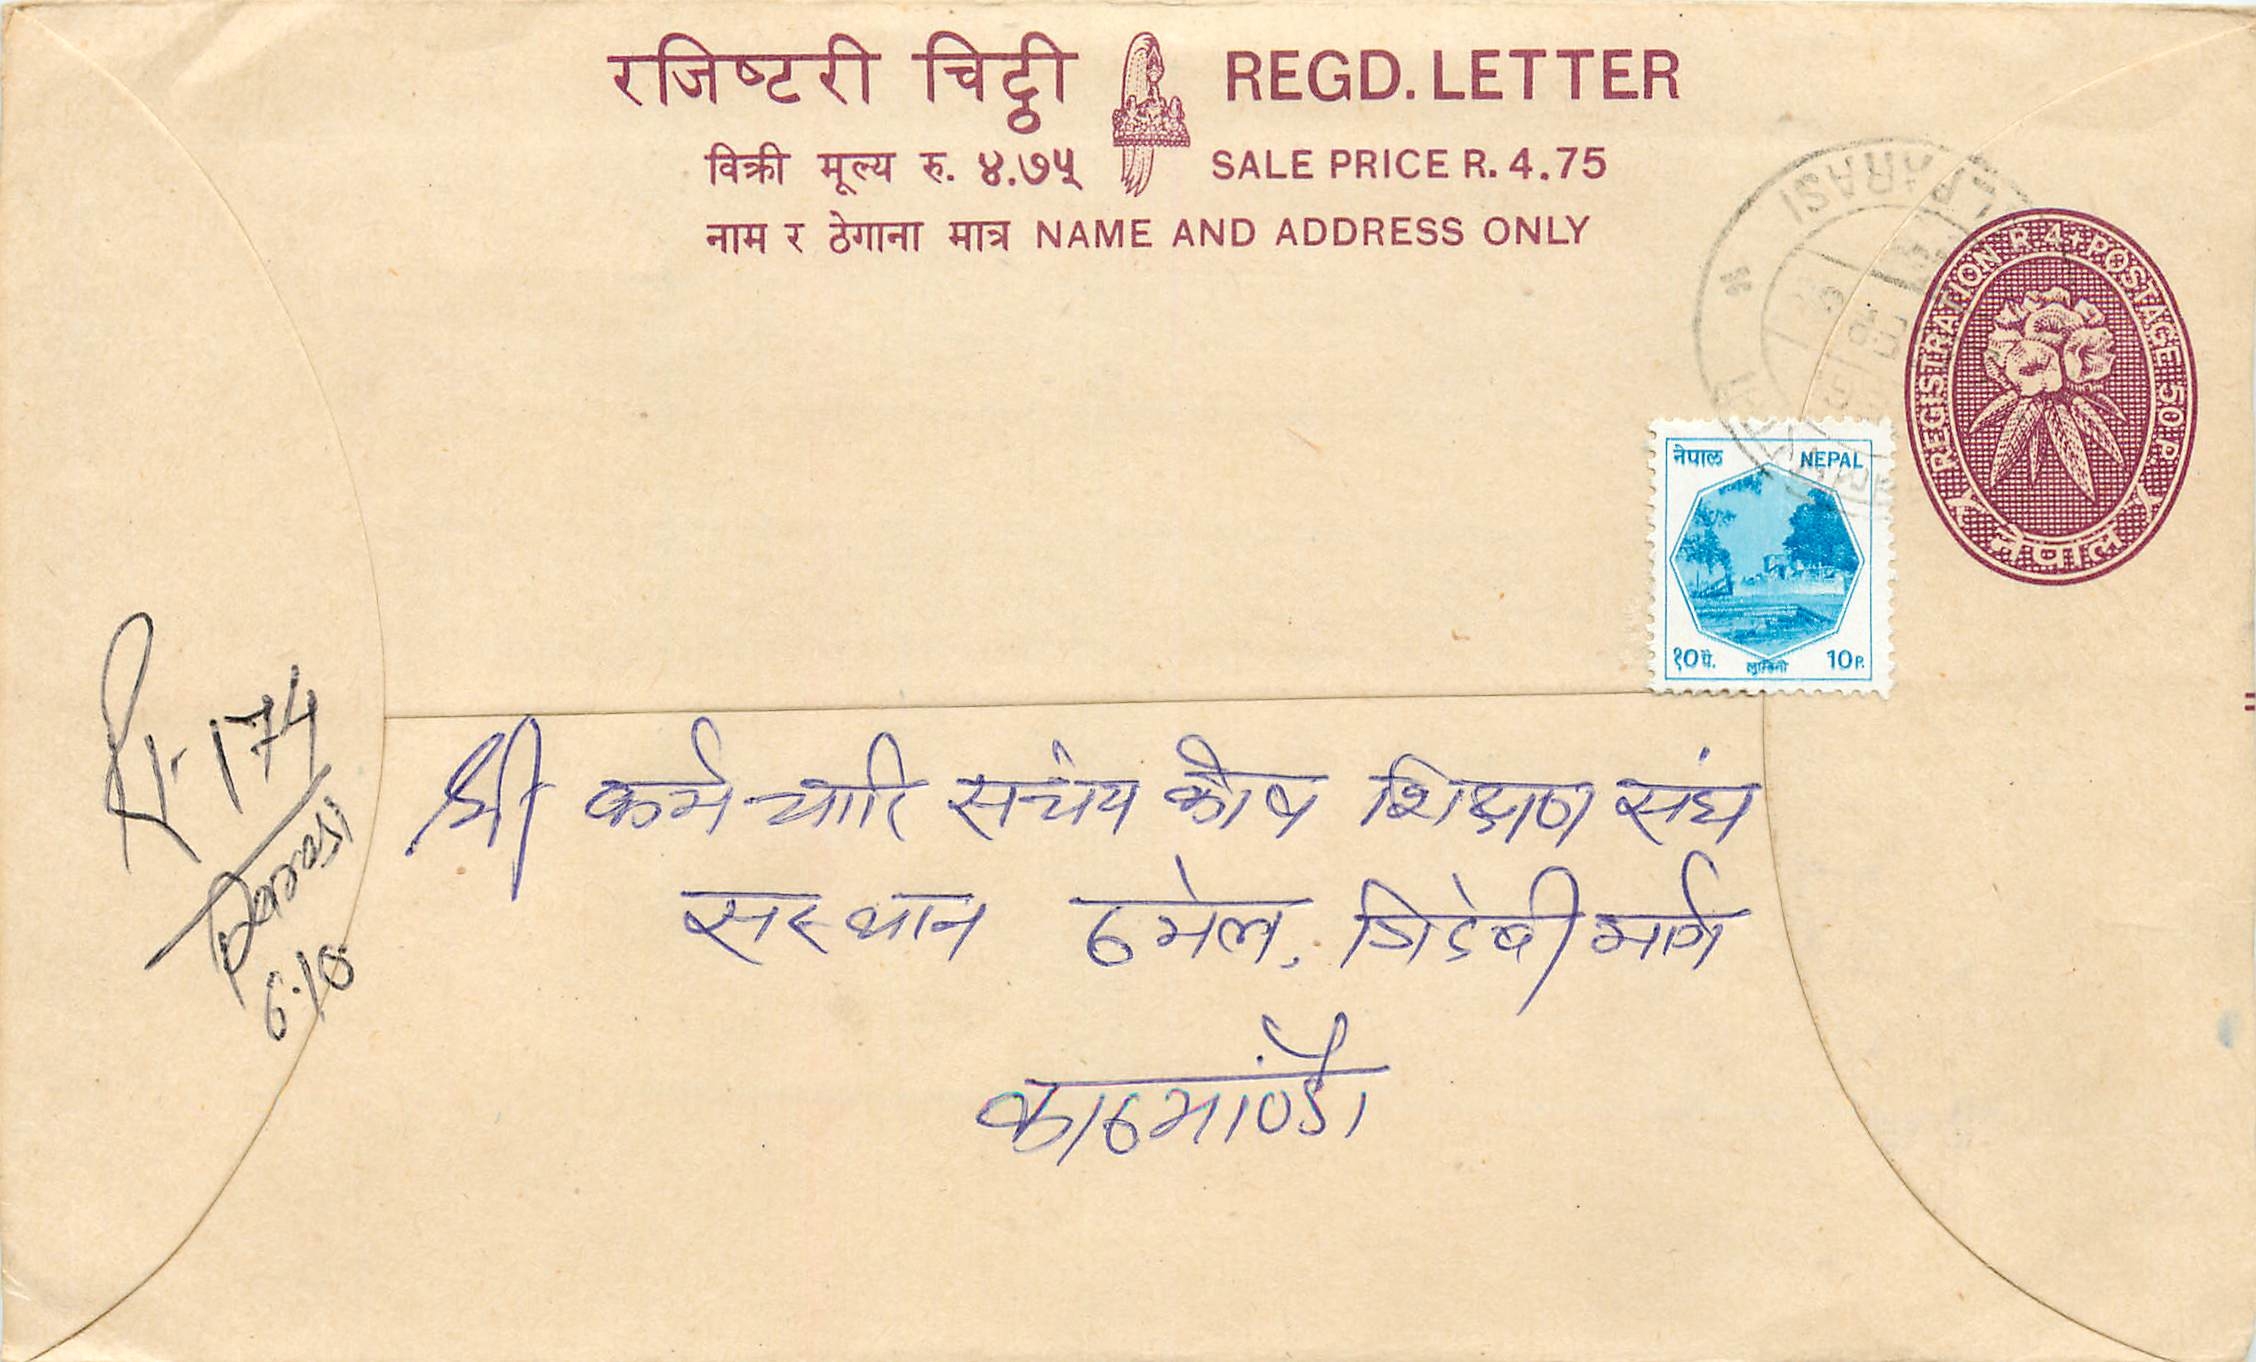 रजिष्टरी चिट्ठी REGD. LETTER
विक्री मूल्य रु. ४.७५ SALE PRICE R. 4.75
नाम र ठेगाना मात्र NAME AND ADDRESS ONLY
PARASI
REGISTRATION R. 4 + POSTAGE 50 P.
नेपाल
नेपाल NEPAL
१० पै. लुम्बिनी 10 P.
174
Parasi
श्री कर्मचारि सचंय कोष शिक्षण संघ
सस्थान ठमेल, त्रिदेबी मार्ग
काठमाण्डौं